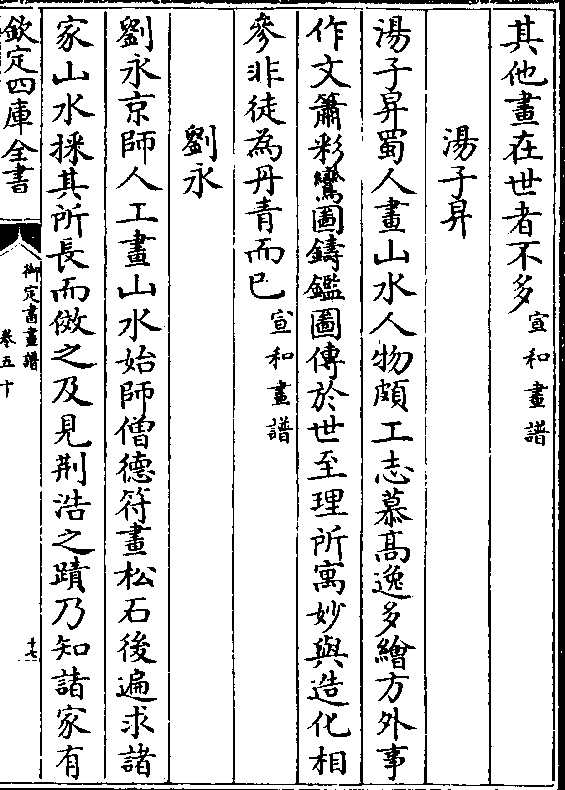 其他畫在世者不多宣和畫譜
湯子昇
湯子昇蜀人畫山水人物頗工志慕髙逸多繪方外事
作文簫彩鸞圖鑄鑑圖傳於世至理所寓妙與造化相
參非徒為丹青而已宣和畫譜
劉永
劉永京師人工畫山水始師僧德符畫松石後遍求諸
家山水採其所長而倣之及見荆浩之蹟乃知諸家有
欽定四庫全書
御定書畫譜
卷五十
十七